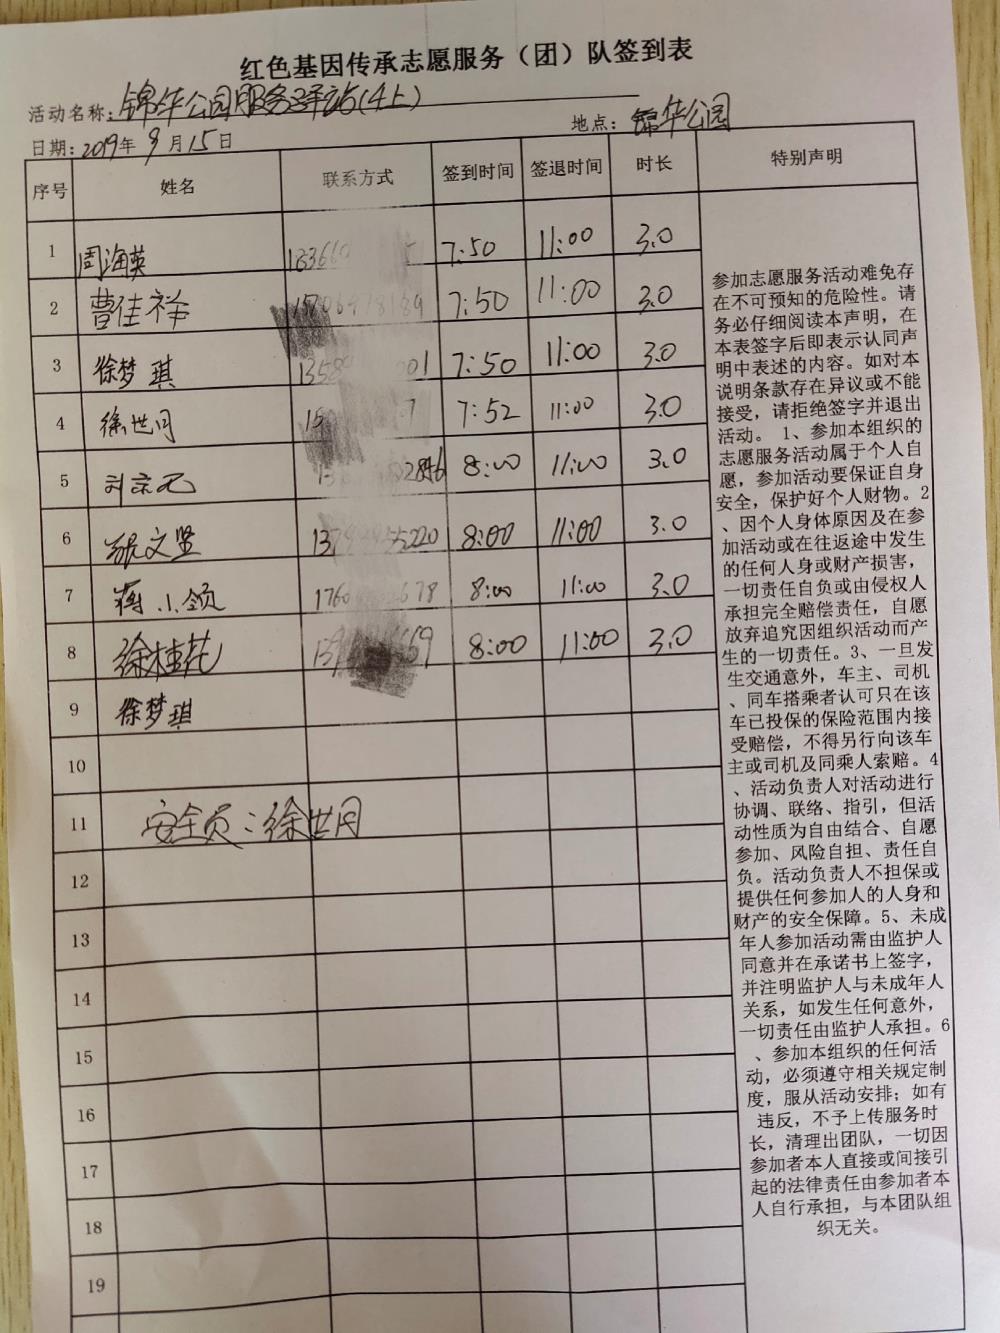 红色基因传承志愿服务（团）队签到表
活动名称：锦华公园服务驿站(4上)
日期：2019年9月15日 地点：锦华公园
序号 姓名 联系方式 签到时间 签退时间 时长 特别声明
1 周海英 7:50 11:00 3.0
2 曹佳祥 7:50 11:00 3.0
3 徐梦琪 7:50 11:00 3.0
4 徐世同 7:52 11:00 3.0
5 8:00 11:00 3.0
6 张文坚 8:00 11:00 3.0
7 蒋小领 8:00 11:00 3.0
8 徐桂花 8:00 11:00 3.0
9 徐梦琪
10
11 安全员：徐世同
12
13
14
15
16
17
18
19
参加志愿服务活动难免存
在不可预知的危险性。请
务必仔细阅读本声明，在
本表签字后即表示认同声
明中表述的内容。如对本
说明条款存在异议或不能
接受，请拒绝签字并退出
活动。 1、参加本组织的
志愿服务活动属于个人自
愿，参加活动要保证自身
安全，保护好个人财物。2
、因个人身体原因及在参
加活动或在往返途中发生
的任何人身或财产损害，
一切责任自负或由侵权人
承担完全赔偿责任，自愿
放弃追究因组织活动而产
生的一切责任。3、一旦发
生交通意外，车主、司机
、同车搭乘者认可只在该
车已投保的保险范围内接
受赔偿，不得另行向该车
主或司机及同乘人索赔。4
、活动负责人对活动进行
协调、联络、指引，但活
动性质为自由结合、自愿
参加、风险自担、责任自
负。活动负责人不担保或
提供任何参加人的人身和
财产的安全保障。5、未成
年人参加活动需由监护人
同意并在承诺书上签字，
并注明监护人与未成年人
关系，如发生任何意外，
一切责任由监护人承担。6
、参加本组织的任何活
动，必须遵守相关规定制
度，服从活动安排；如有
违反，不予上传服务时
长，清理出团队，一切因
参加者本人直接或间接引
起的法律责任由参加者本
人自行承担，与本团队组
织无关。